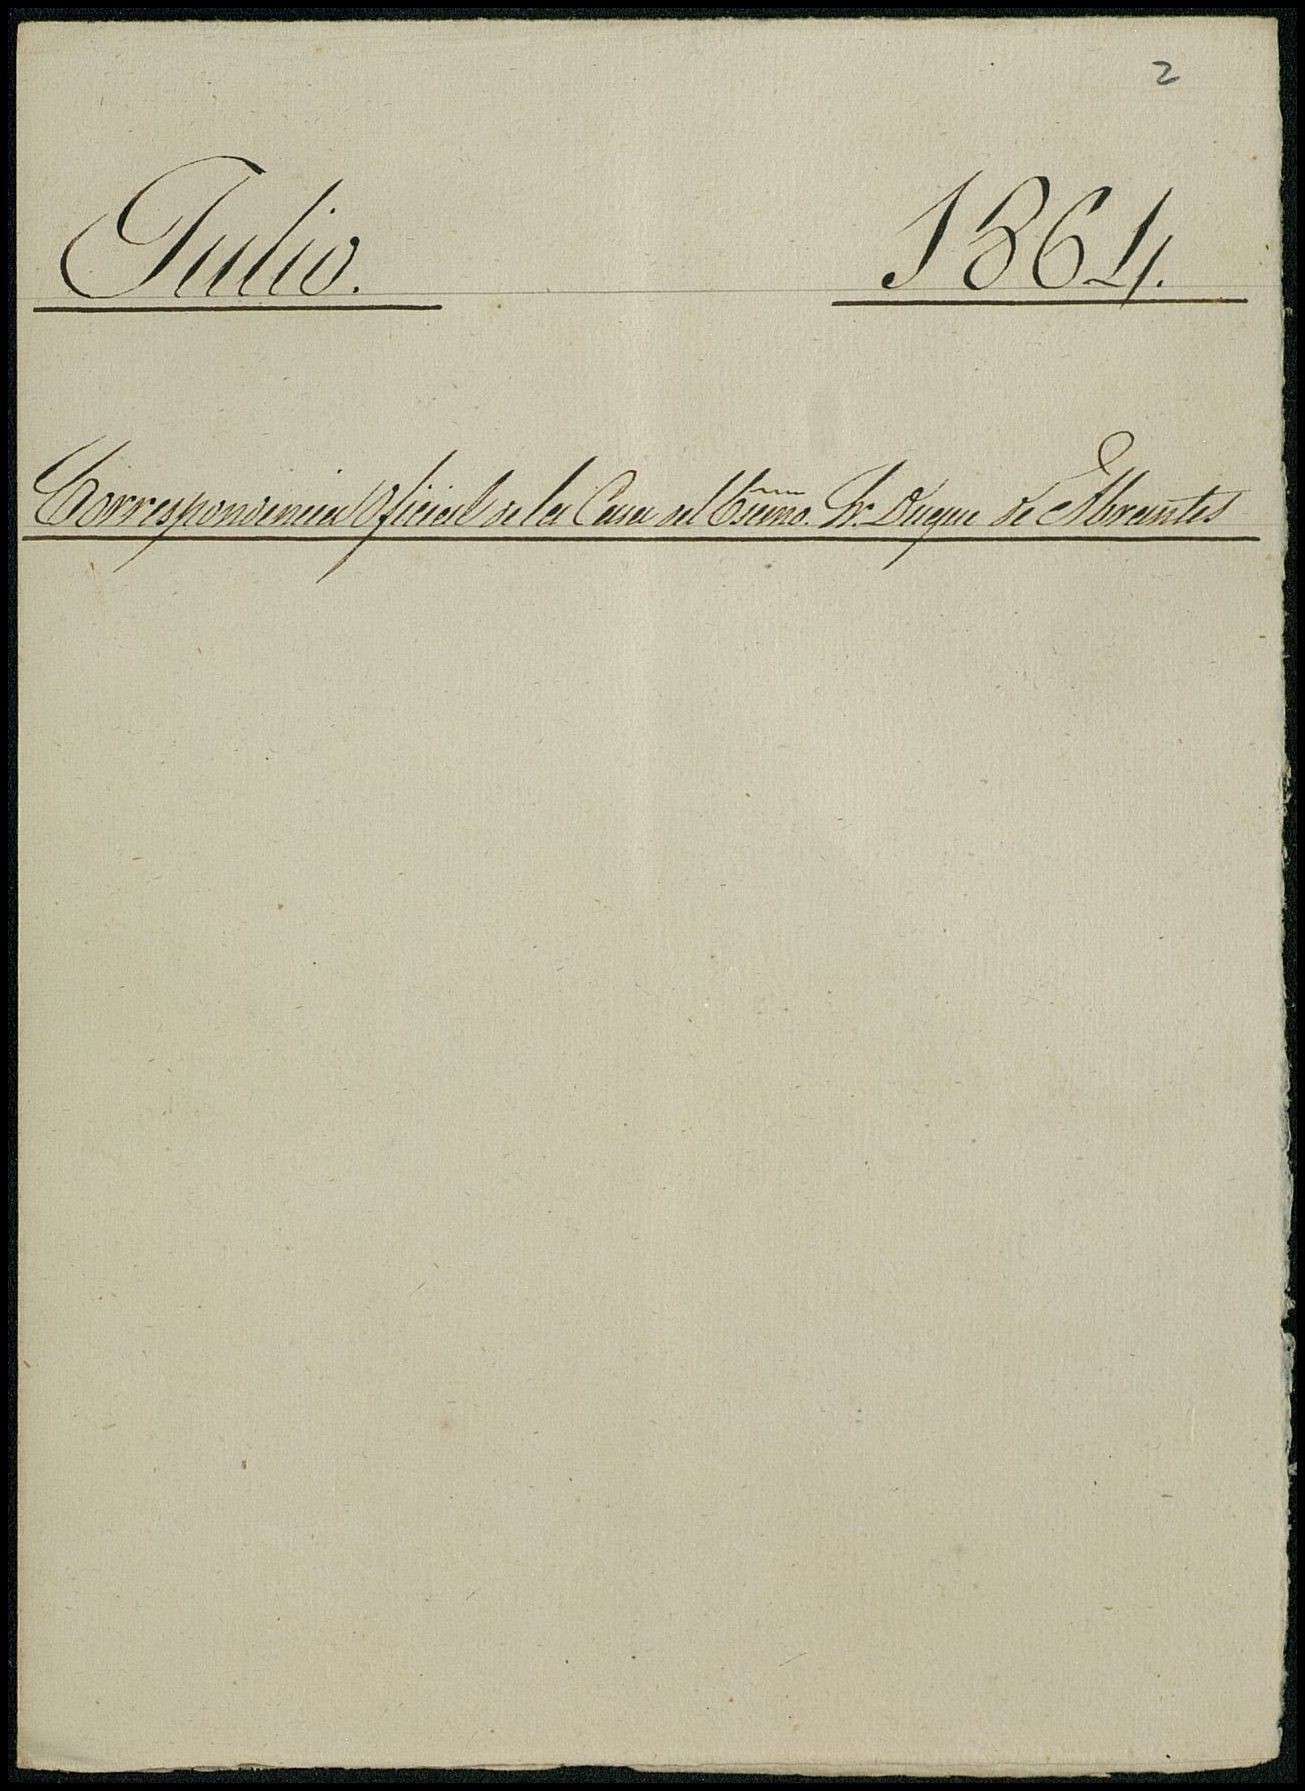 2
Julio. 1864.
Correspondencia Oficial de la Casa del Escmo. Sr. Duque de Abrantes